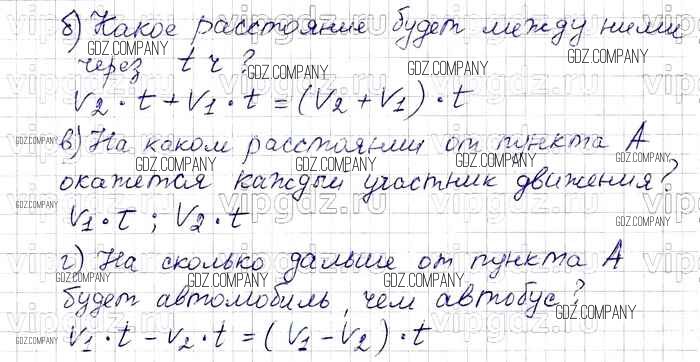 б) Какое расстояние будет между ними
через t ч?
V₂ · t + V₁ · t = (V₂ + V₁) · t
в) На каком расстоянии от пункта А
окажется каждый участник движения?
V₁ · t ; V₂ · t
г) На сколько дальше от пункта А
будет автомобиль, чем автобус?
V₁ · t − V₂ · t = (V₁ − V₂) · t